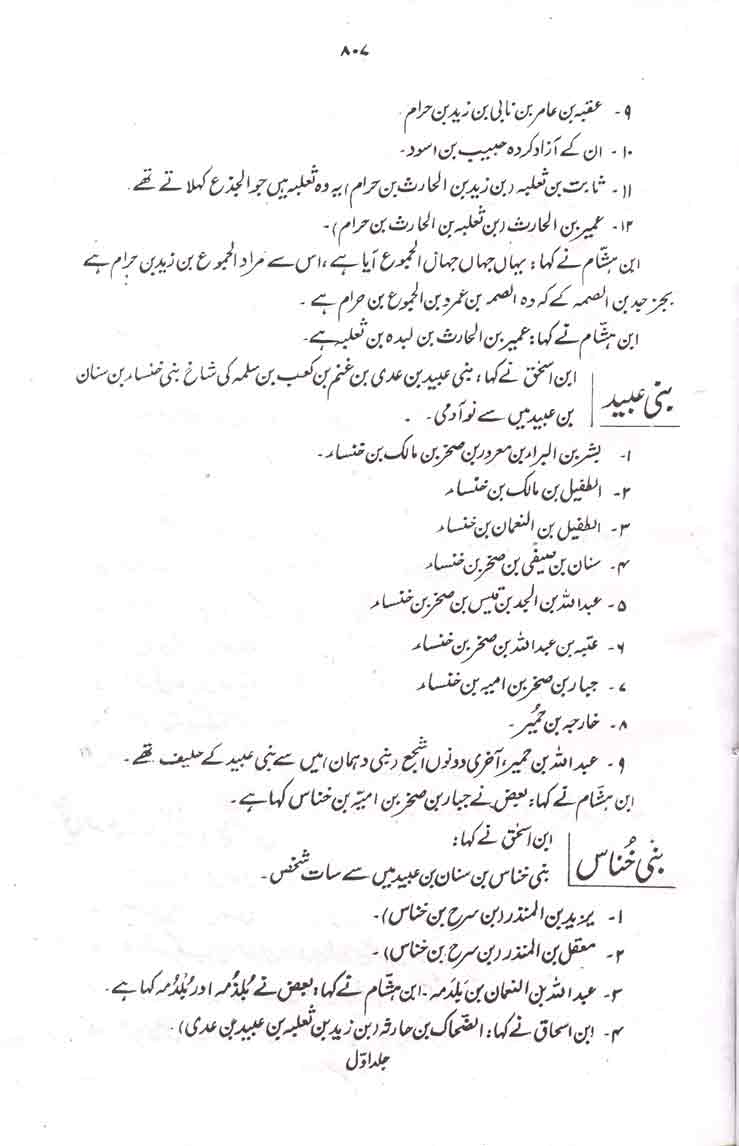 ۸۰۷
۹- عقبہ بن عامر بن نابی بن زید بن حرام
۱۰- ان کے آزاد کردہ حبیب بن اسود۔
۱۱- ثابت بن ثعلبہ (بن زید بن الحارث بن حرام) یہ وہ ثعلبہ ہیں جو الجذع کہلاتے تھے۔
۱۲- عمیر بن الحارث (بن ثعلبہ بن الحارث بن حرام)۔
ابن ہشام نے کہا: یہاں جہاں جہاں الجموع آیا ہے، اس سے مراد الجموع بن زید بن حرام ہے
بجز جد بن الصمہ کے کہ وہ الصمہ بن عمرو بن الجموع بن حرام ہے۔
ابن ہشام نے کہا: عمیر بن الحارث بن لبدہ بن ثعلبہ ہے۔
بنی عبید
ابن اسحٰق نے کہا: بنی عبید بن عدی بن غنم بن کعب بن سلمہ کی شاخ بنی خنساء بن سنان
بن عبید میں سے نو آدمی۔
۱- بشر بن البراء بن معرور بن صخر بن مالک بن خنساء۔
۲- الطفیل بن مالک بن خنساء
۳- الطفیل بن النعمان بن خنساء
۴- سنان بن صیفی بن صخر بن خنساء
۵- عبداللہ بن الجد بن قیس بن صخر بن خنساء
۶- عتبہ بن عبداللہ بن صخر بن خنساء
۷- جبار بن صخر بن امیہ بن خنساء
۸- خارجہ بن حمیر۔
۹- عبداللہ بن حمیر، آخری دونوں اشجع (بنی دہمان) میں سے بنی عبید کے حلیف تھے۔
ابن ہشام نے کہا: بعض نے جبار بن صخر بن امیّہ بن خناس کہا ہے۔
بنی خُناس
ابن اسحٰق نے کہا:
بنی خناس بن سنان بن عبید میں سے سات شخص۔
۱- یزید بن المنذر (بن سرح بن خناس)۔
۲- معقل بن المنذر (بن سرح بن خناس)۔
۳- عبداللہ بن النعمان بن بَلدَمہ۔ ابن ہشام نے کہا: بعض نے بُلذُمہ اور بُلدُمہ کہا ہے۔
۴- ابن اسحاق نے کہا: الضّحاک بن حارثہ (بن زید بن ثعلبہ بن عبید بن عدی)۔
جلد اوّل